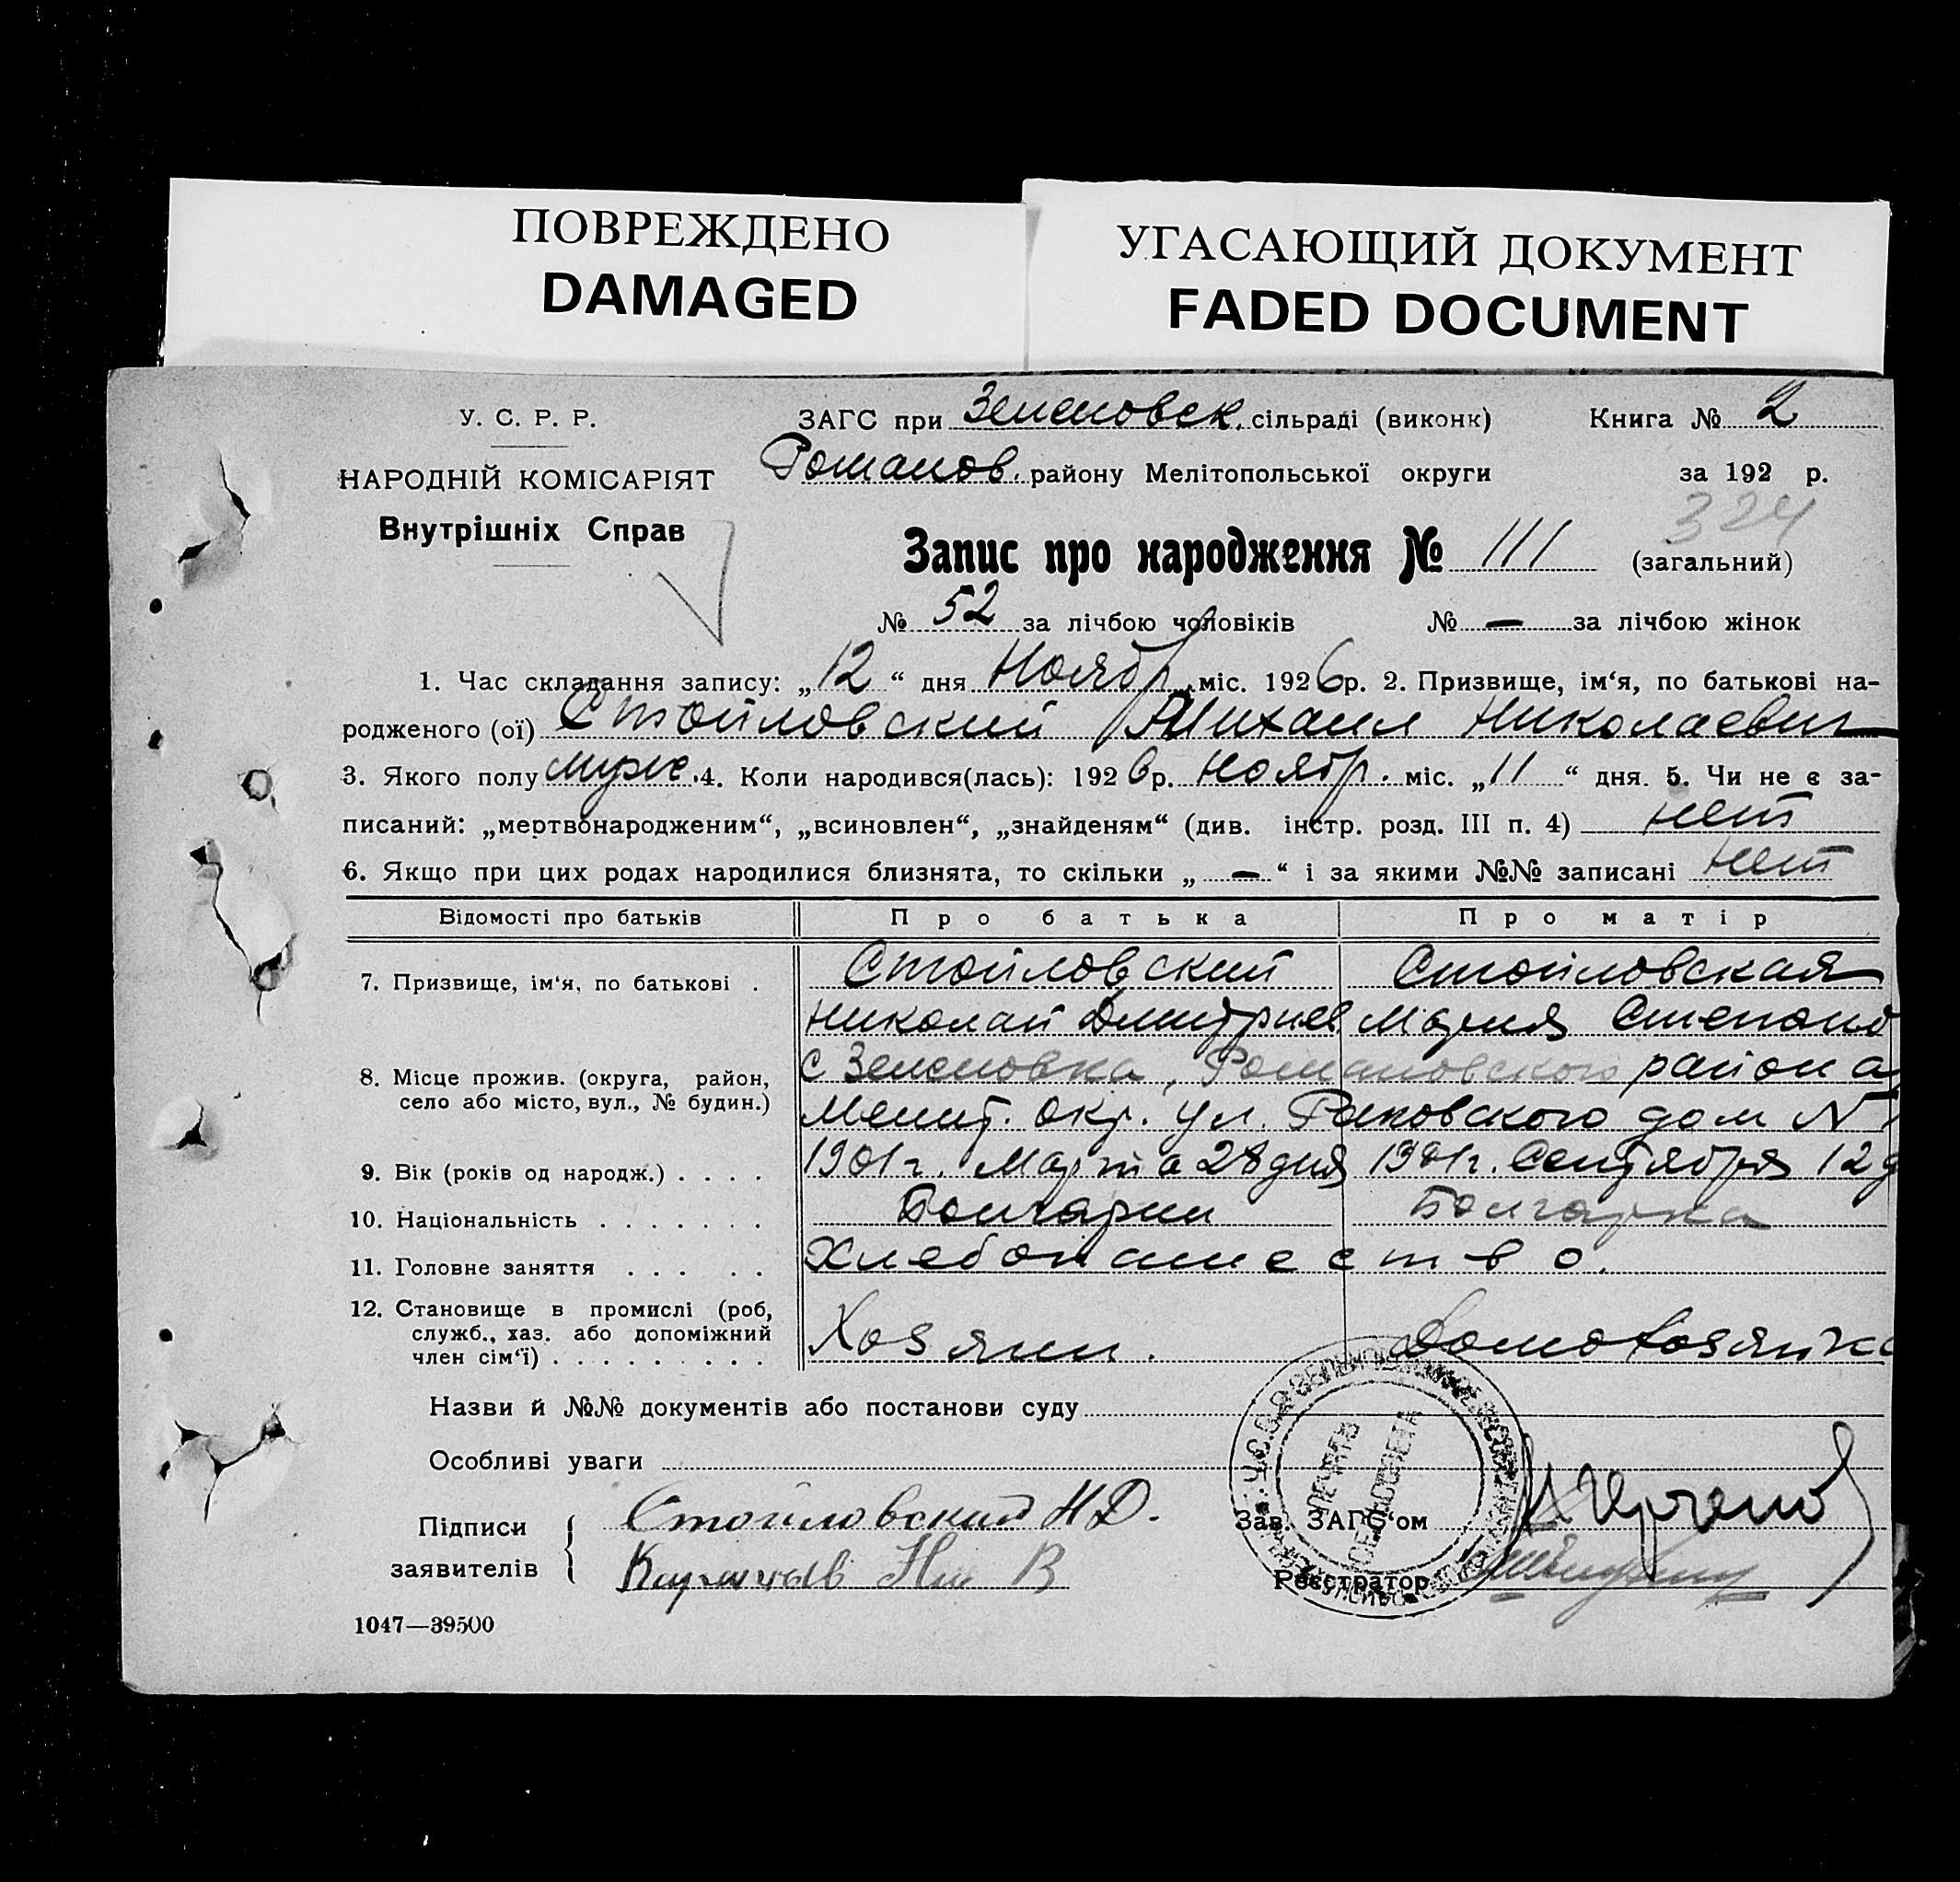 ПОВРЕЖДЕНО
DAMAGED
УГАСАЮЩИЙ ДОКУМЕНТ
FADED DOCUMENT
У. С. Р. Р.
НАРОДНІЙ КОМІСАРІЯТ
Внутрішніх Справ
ЗАГС при Зеленовск. сільраді (виконк)
Романов. району Мелітопольської округи
Книга № 2
за 192 р.
324
Запис про народження № 111 (загальний)
№ 52 за лічбою чоловіків № — за лічбою жінок
1. Час складання запису: „12“ дня Ноябр. міс. 1926р. 2. Призвище, ім‘я, по батькові на-
родженого (ої) Стойловский Михаил Николаевич
3. Якого полу муж. 4. Коли народився(лась): 1926р. Ноябр. міс. „11“ дня. 5. Чи не є за-
писаний: „мертвонародженим“, „всиновлен“, „знайденям“ (див. інстр. розд. III п. 4) нет
6. Якщо при цих родах народилися близнята, то скільки „—“ і за якими №№ записані нет
Відомості про батьків Про батька Про матір
7. Призвище, ім‘я, по батькові . Стойловский Стойловская
Николай Дмитриев Мария Степанов
8. Місце прожив. (округа, район, с Зеленовка, Романовского района
село або місто, вул., № будин.) Мелит. окр. ул. Раковского дом №
9. Вік (років од народж.) . . . . 1901г. Марта 28 дня 1901г. Сентября 12 д
10. Національність . . . . . . . Болгарин Болгарка
11. Головне заняття . . . . . Хлебопашество.
12. Становище в промислі (роб,
служб., хаз. або допоміжний
член сім‘ї) . . . . . . . . . Хозяин. Домохозяйка
Назви й №№ документів або постанови суду
Особливі уваги
Підписи
заявителів
Стойловский Н Д.
Зав. ЗАГС‘ом
Реєстратор
ПЕЧАТЬ
СЕЛЬСОВЕТА
1047—39500